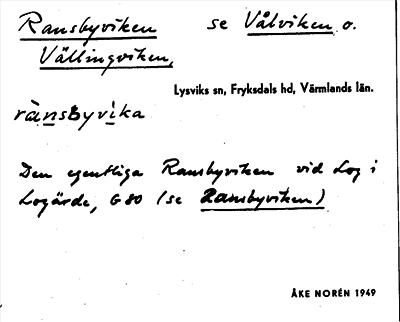 Ransbyviken se Vålviken o.
Vällingviken,
Lysviks sn, Fryksdals hd, Värmlands län.
rànsbyvìka
Den egentliga Ransbyviken vid Log i
Logärde, G 80 (se Ransbyviken)
ÅKE NORÉN 1949